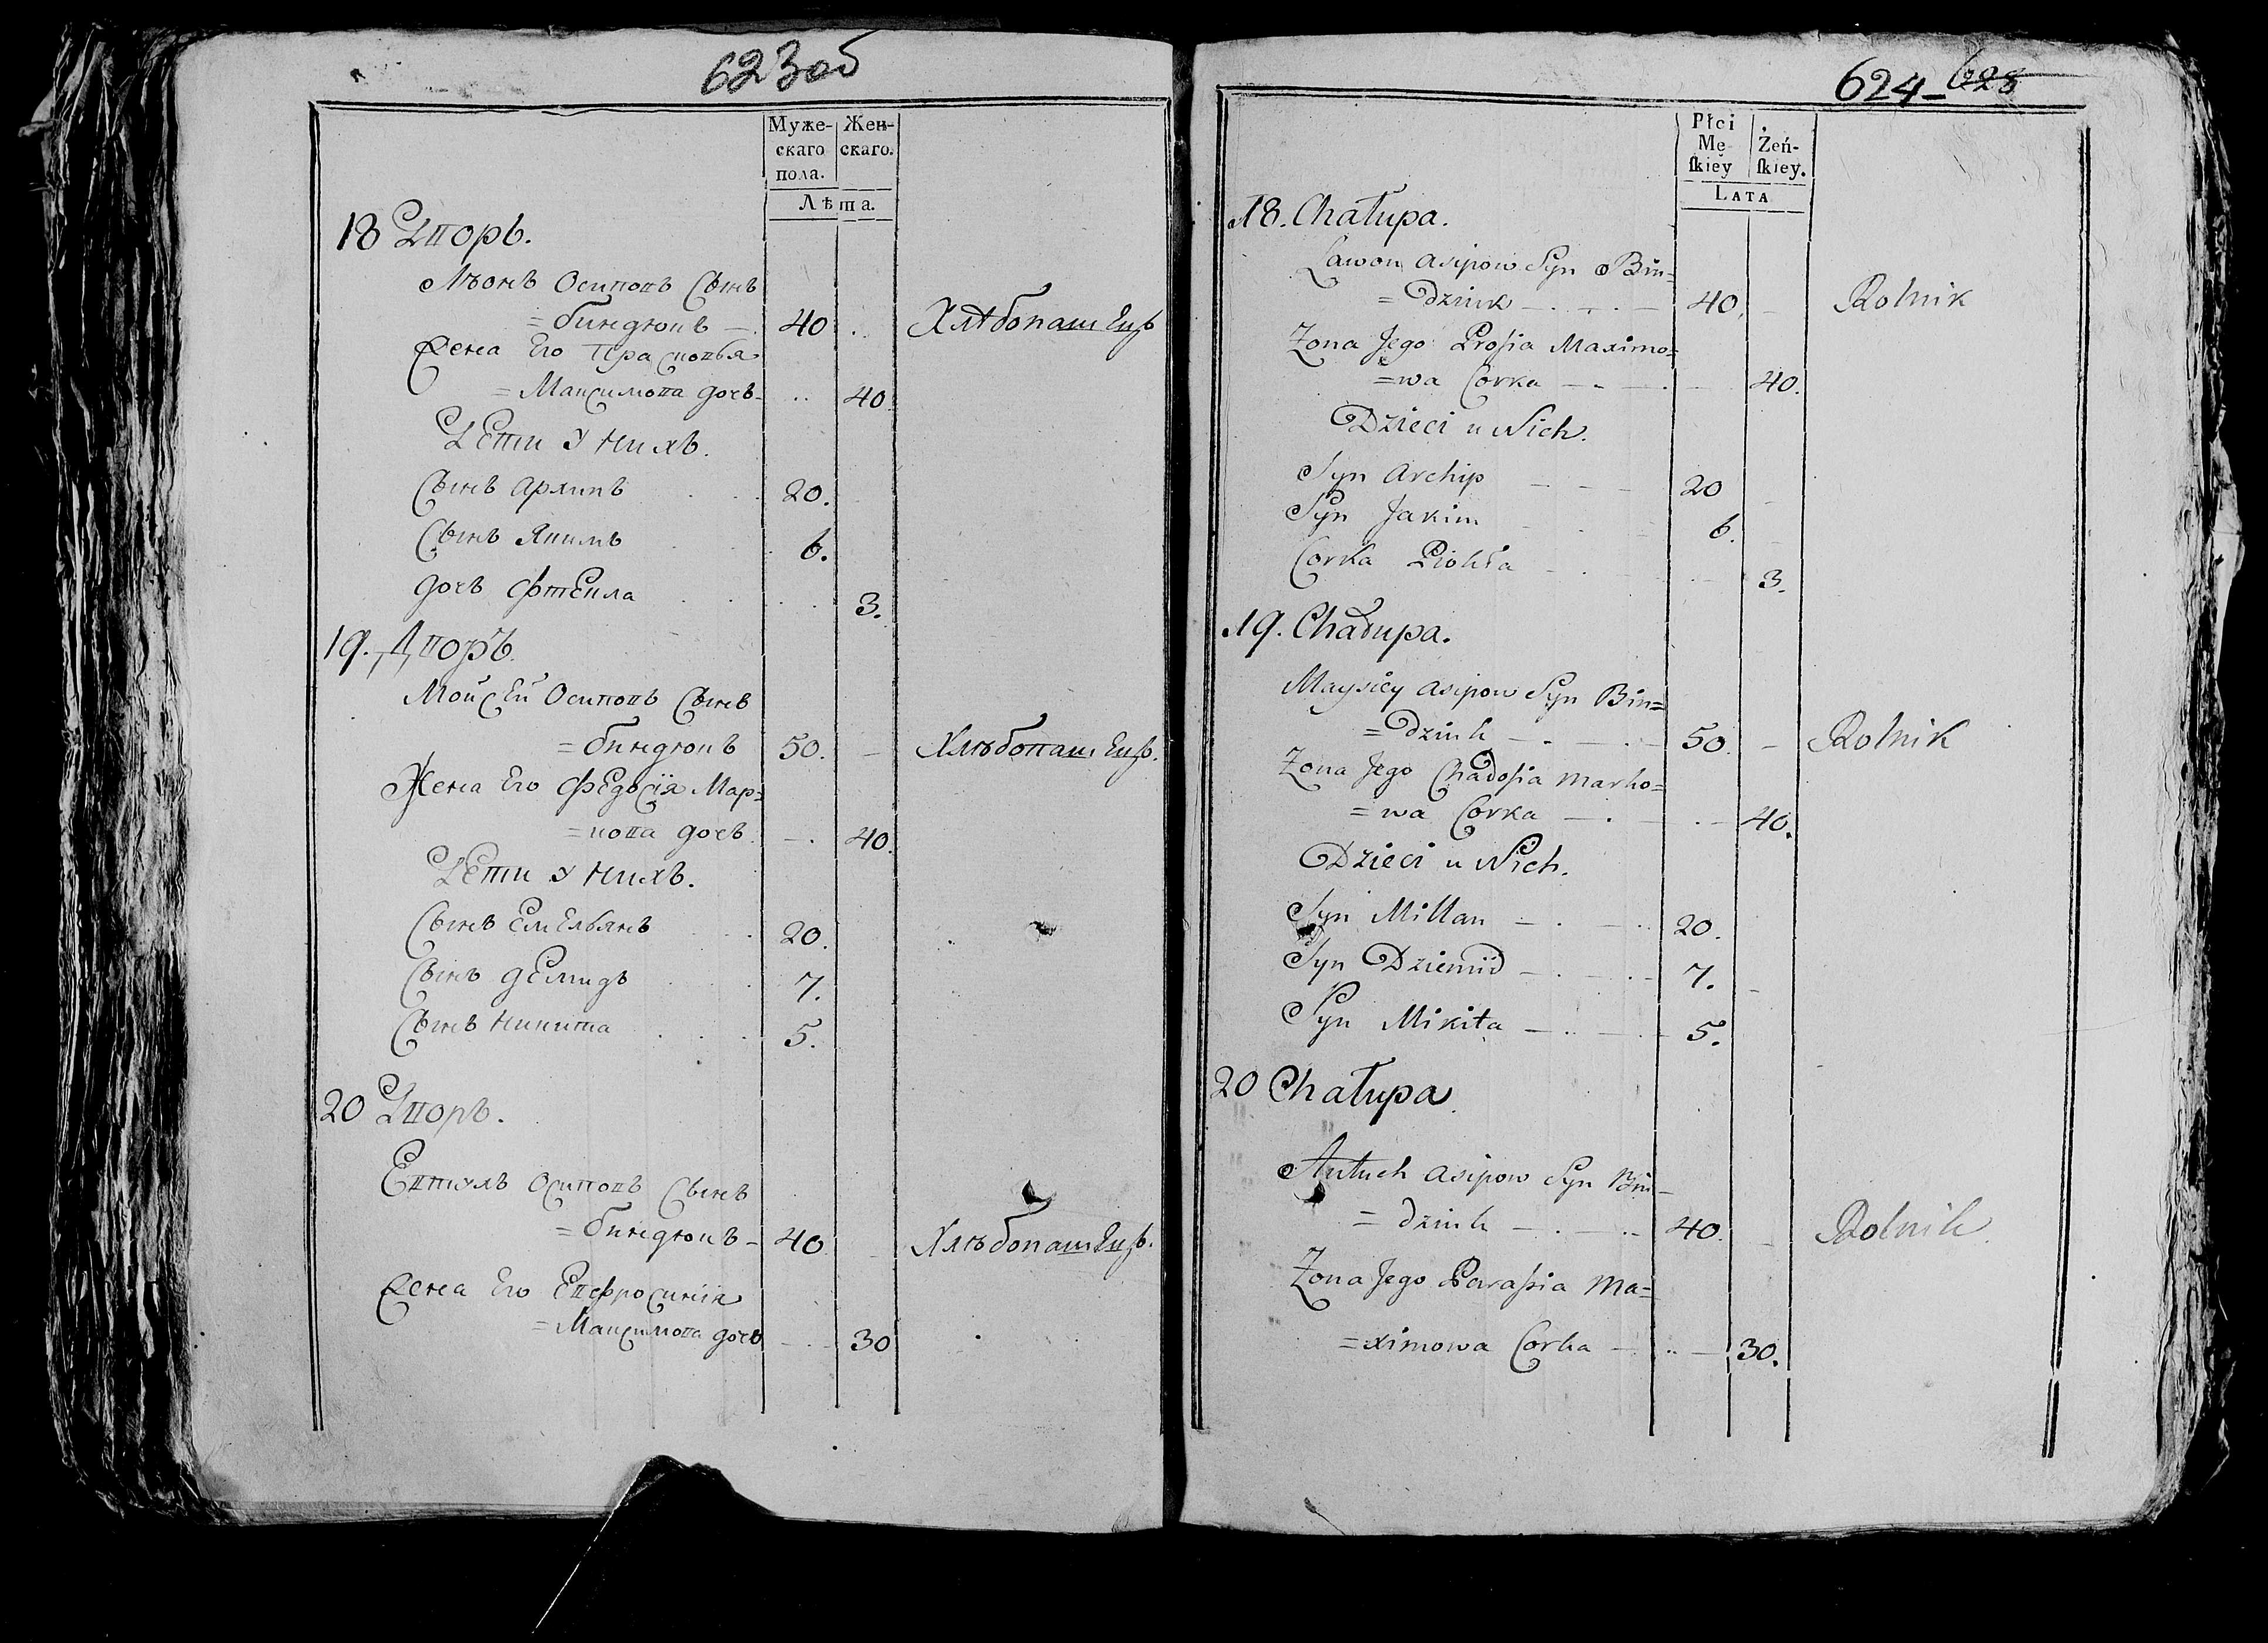 623об
Муже-
скаго
пола.
Жен-
скаго.
Лѣта.
18 Дворъ.
Лѣонъ Осиповъ Сынъ
=биндюкъ —. 40 .. Хлѣбопашецъ
Жена Его Прасковья
=Максимова дочь- .. 40.
Дети у нихъ.
Сынъ Архипъ . . . 20.
Сынъ Якимъ . . . 6.
дочь Фтекла . . . . . 3.
19. Дворъ.
Мойсей Осиповъ Сынъ
=биндюкъ 50. — Хлѣбопашецъ.
Жена Его Федосія Мар=
=кова дочь. —. 40.
Дети у нихъ.
Сынъ Емельянъ . . . 20.
Сынъ демидъ . . . 7.
Сынъ никита . . . 5.
20 Дворъ.
Евтухъ Осиповъ Сынъ
=биндюкъ - 40 — Хлѣбопашецъ.
Жена Его Евфросинія
=Максимова дочь — . — 30
624 - 628
Płci
Mę
ſkiey
Żeń-
ſkiey.
LATA
18. Chałupa.
Lawon asipow Syn Bin-
=Dziuk — . — . — 40. — Rolnik
Zona Jego Prosia Maximo=
=wa Corka — . — . — 40.
Dzieci u Nich.
Syn Archip — — — 20
Syn Jakim 6.
Corka Ciokła — . — 3.
19. Chałupa.
Maysiey asipow Syn Bin=
=Dziuk — . — . — 50. — Rolnik
Zona Jego Chadosia marko=
=wa Corka — . — . — 40.
Dzieci u Nich.
Syn Millan — . — .. 20.
Syn Dziemid — . — . — 7.
Syn Mikita — .. — . — 5.
20 Chałupa.
Autuch asipow Syn Bin—
=dziuk — . — .. 40. — Rolnik.
Zona Jego Parasia Ma=
=ximowa Corka — .. — 30.